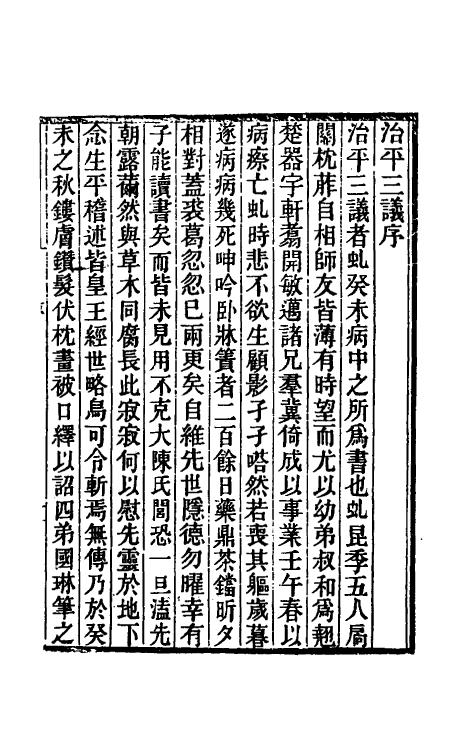 治平三議序
治平三議者虬癸未病中之所爲書也虬昆季五人扃
關枕葄自相師友皆薄有時望而尤以幼弟叔和爲翹
楚器宇軒翥開敏邁諸兄羣冀倚成以事業壬午春以
病瘵亡虬時悲不欲生顧影孑孑嗒然若喪其軀歲暮
遂病病幾死呻吟卧牀簀者二百餘日藥鼎茶鐺昕夕
相對蓋裘葛忽忽已兩更矣自維先世隱德勿曜幸有
子能讀書矣而皆未見用不克大陳氏閭恐一旦溘先
朝露薾然與草木同腐長此寂寂何以慰先靈於地下
念生平稽述皆皇王經世略烏可令斬焉無傳乃於癸
未之秋鏤膚鑽髮伏枕畫被口繹以詔四弟國琳筆之
序